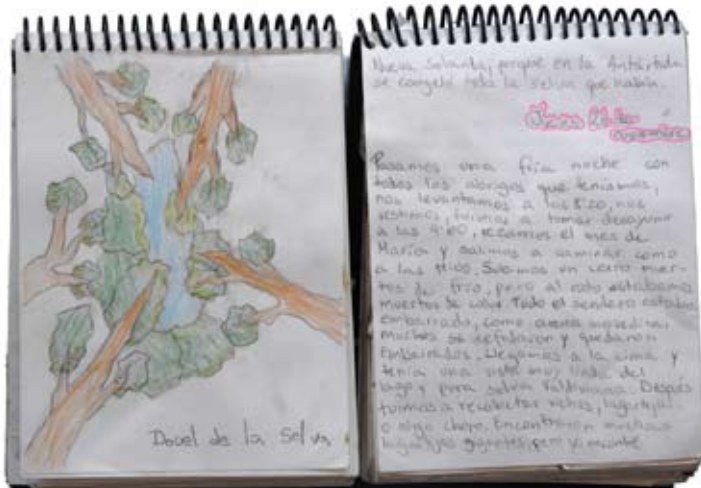 Docel de la Selva
Nueva Zelanda, porque en la Antártida
se congeló toda la selva que había.
Jueves 26 de
noviembre
Pasamos una fría noche con
todos los abrigos que teníamos,
nos levantamos a las 8:20, nos
vestimos, fuimos a tomar desayuno
a las 9:00, rezamos el mes de
María y salimos a caminar como
a las Subimos un cerro muer-
tos de frío, pero al rato estabamos
muertos de calor. Todo el sendero estaba
embarrado, como arena movediza,
muchos se refalaron y quedaron
embarrados. Llegamos a la cima y
tenía una vista muy linda del
lago y pura selva Valdiviana. Después
fuimos a recolectar bichos, lagartijas
o algo choro. Encontraron muchas
lagartijas gigantes, pero yo encontré